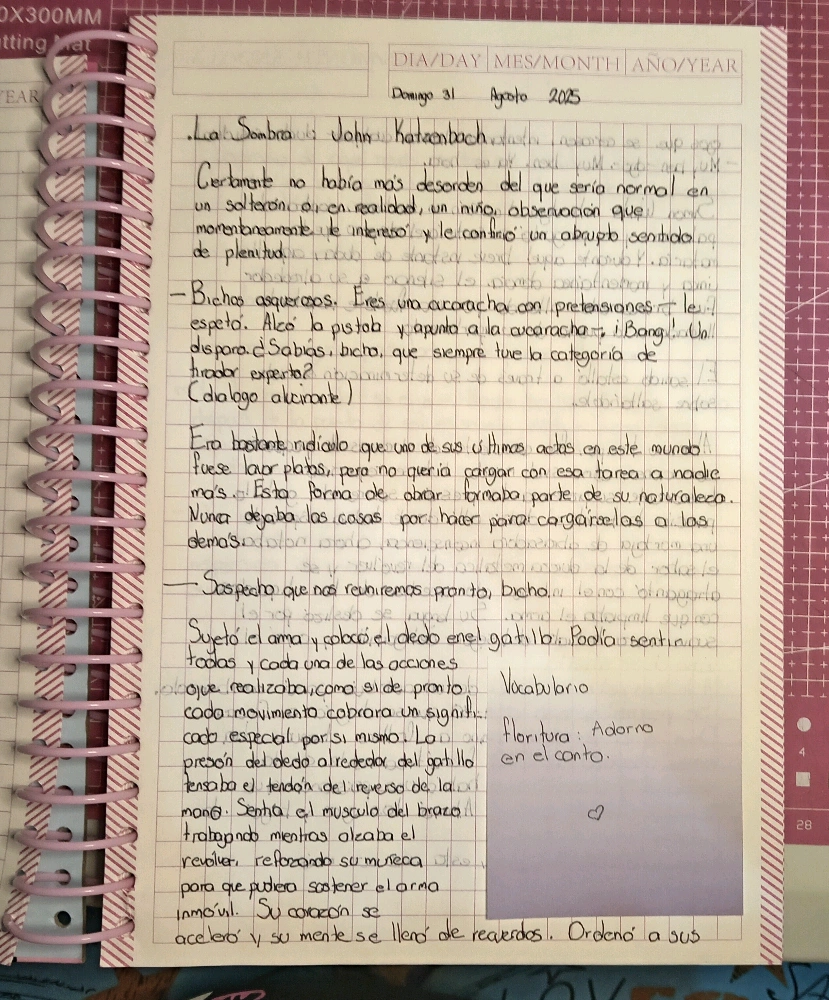 0X300MM
tting Mat
YEAR
DIA/DAY MES/MONTH AÑO/YEAR
Domingo 31 Agosto 2025
.La Sombra : John Katzenbach
Certamente no había más desorden del que sería normal en
un solterón o, en realidad, un niño, observación que
momentaneamente le intereso y le confirió un abrupto sentido
de plenitud.
- Bichos asquerosos. Eres una cucaracha con pretensiones - le
espetó. Alcó la pistola y apunto a la cucaracha -. ¡Bang! Un
disparo. ¿Sabías, bicho, que siempre tuve la categoría de
tirador experto?
(dialogo alcinante)
Era bastante ridículo que uno de sus últimos actos en este mundo
fuese lavar platos, pero no queria cargar con esa tarea a nadie
más. Esta forma de obrar formaba parte de su naturaleza.
Nunca dejaba las cosas por hacer para cargárselas a los
demás.
— Sospecho que nos reuniremos pronto, bicho.
Sujetó el ama y colocó el dedo en el gatillo. Podía sentir
todas y cada una de las acciones
que realizaba, como si de pronto
cada movimiento cobrara un signifi-
cado especial por si mismo. La
presón del dedo alrededor del gatillo
tensaba el tendón del reverso de la
mano. Sentía el musculo del brazo
trabajando mientras alzaba el
revolver, reforzando su muñeca
para que pudiera sostener el arma
inmóvil. Su corazón se
aceleró y su mente se llenó de recuerdos. Ordenó a sus
Vocabulario
floritura: Adorno
en el canto.
4
28